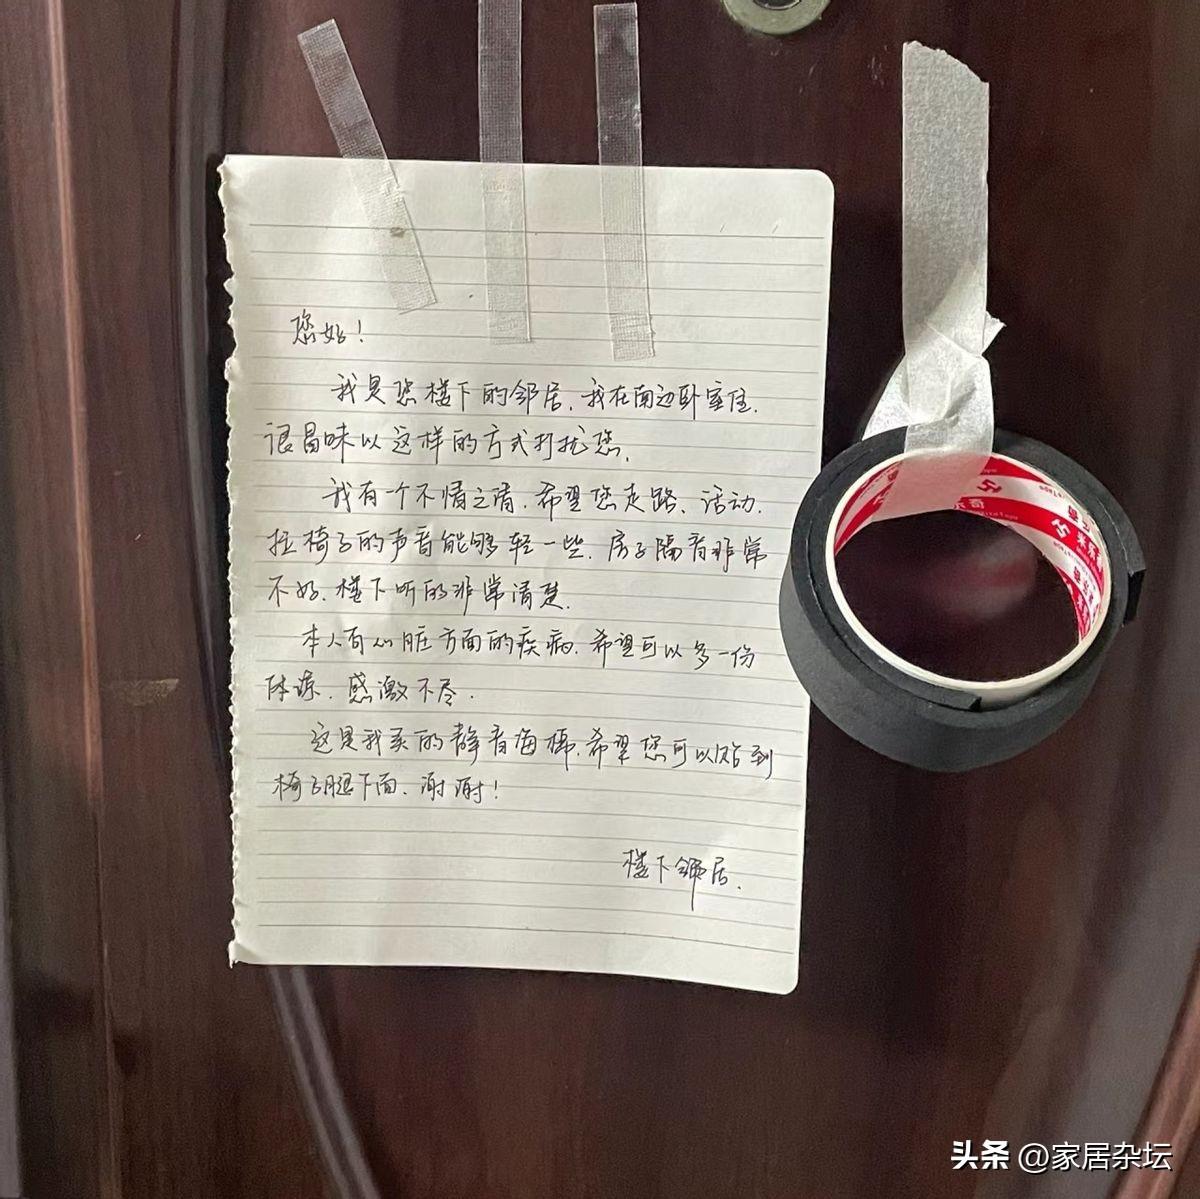 您好！
我是您楼下的邻居，我在南边卧室住，
很冒昧以这样的方式打扰您，
我有个不情之请，希望您走路、活动、
拉椅子的声音能够轻一些，房子隔音非常
不好，楼下听的非常清楚，
本人有心脏方面的疾病，希望可以多一份
体谅，感激不尽，
这是我买的静音海棉，希望您可以贴到
椅子腿下面，谢谢！
楼下邻居，
头条 @家居杂坛